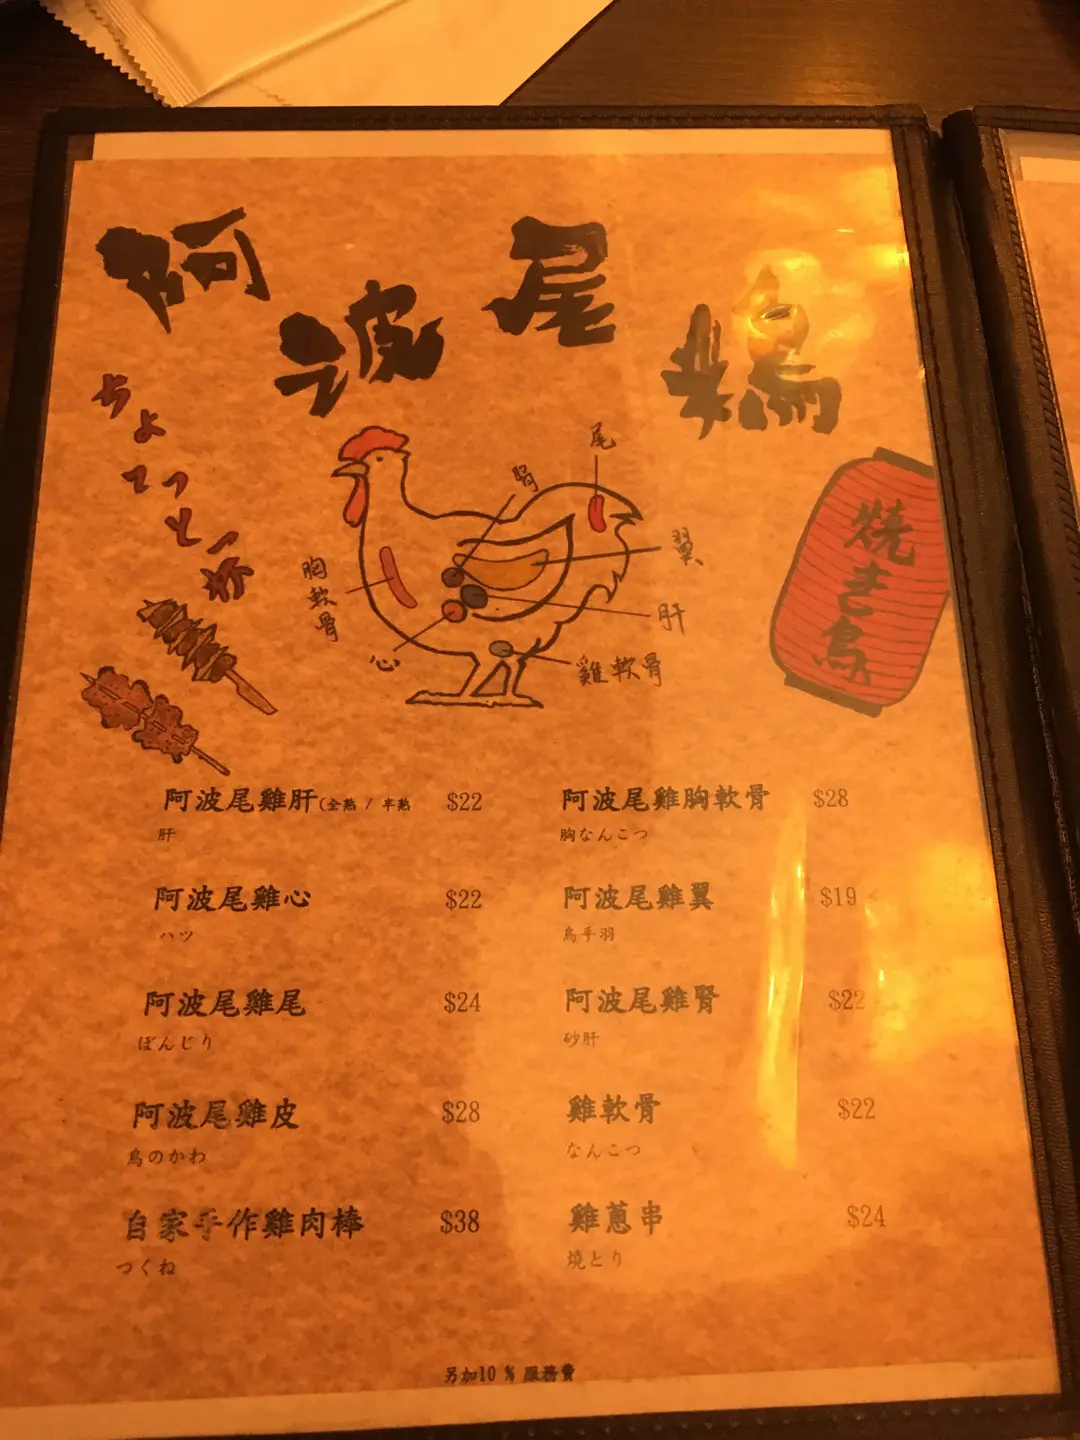 阿波尾雞
ちょっと一杯
焼き鳥
尾
腎
翼
胸軟骨
肝
心
雞軟骨
阿波尾雞肝(全熟 / 半熟 $22
肝
阿波尾雞心 $22
ハツ
阿波尾雞尾 $24
ぼんじり
阿波尾雞皮 $28
鳥のかわ
自家手作雞肉棒 $38
つくね
阿波尾雞胸軟骨 $28
胸なんこつ
阿波尾雞翼 $19
鳥手羽
阿波尾雞腎 $22
砂肝
雞軟骨 $22
なんこつ
雞蔥串 $24
燒とり
另加10 % 服務費